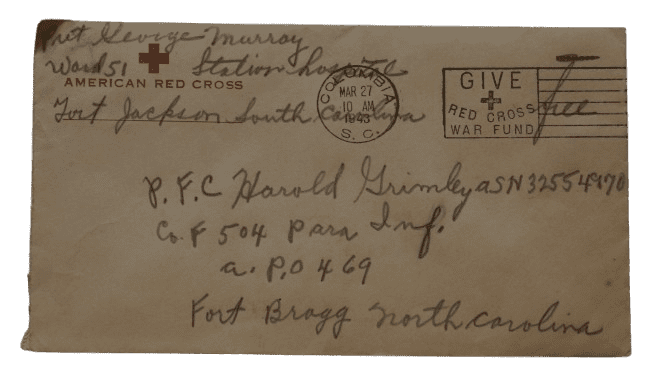 Pvt George Murray
Ward 51 Station Hosp T.C
AMERICAN RED CROSS
Fort Jackson South Carolina
COLUMBIA
MAR 27
10 AM
1943
S. C.
GIVE
RED CROSS
WAR FUND
free
P.F.C Harold Grimley ASN 32554970
Co. F 504 Para Inf.
a. P.O 469
Fort Bragg North Carolina